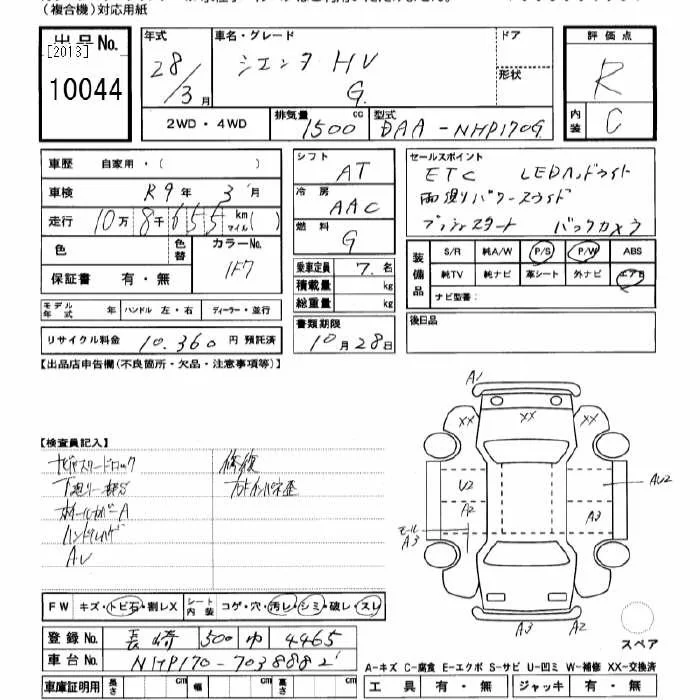 (複合機)対応用紙
出品No.
[2013]
10044
年式 車名・グレード ドア 評価点
28/3月 シエンタ HV 形状 R
G
2WD・4WD 排気量 1500 cc 型式 DAA-NHP170G 内装 C
車歴 自家用・( )
車検 R9年 3月
走行 10万8千655 km マイル( )
色 色替 カラーNo. 1F7
保証書 有・無
モデル年式 年 ハンドル 左・右 ディーラー・並行
リサイクル料金 10,360円 預託済
シフト AT
冷房 AAC
燃料 G
乗車定員 7名
積載量 kg
総重量 kg
書類期限
10月28日
セールスポイント
ETC LEDヘッドライト
両側パワースライド
プッシュスタート バックカメラ
装備品 S/R 純A/W P/S P/W ABS
純TV 純ナビ 革シート 外ナビ エアB
ナビ型番:
後日品
【出品店申告欄(不良箇所・欠品・注意事項等)】
【検査員記入】
修復
下廻り
ホイールカバーA
AU
A1
XX XX XX
U2 A2 AU2
モール A3 A3
A3 A2
スペア
FW キズ・トビ石・割レX シート内装 コゲ・穴・汚レ・シミ・破レ・スレ
登録No. 長崎 500 ゆ 4465
車台No. NHP170-7038882
車庫証明用 長さ cm 幅 cm 高さ cm
A-キズ C-腐食 E-エクボ S-サビ U-凹ミ W-補修 XX-交換済
工具 有・無 ジャッキ 有・無